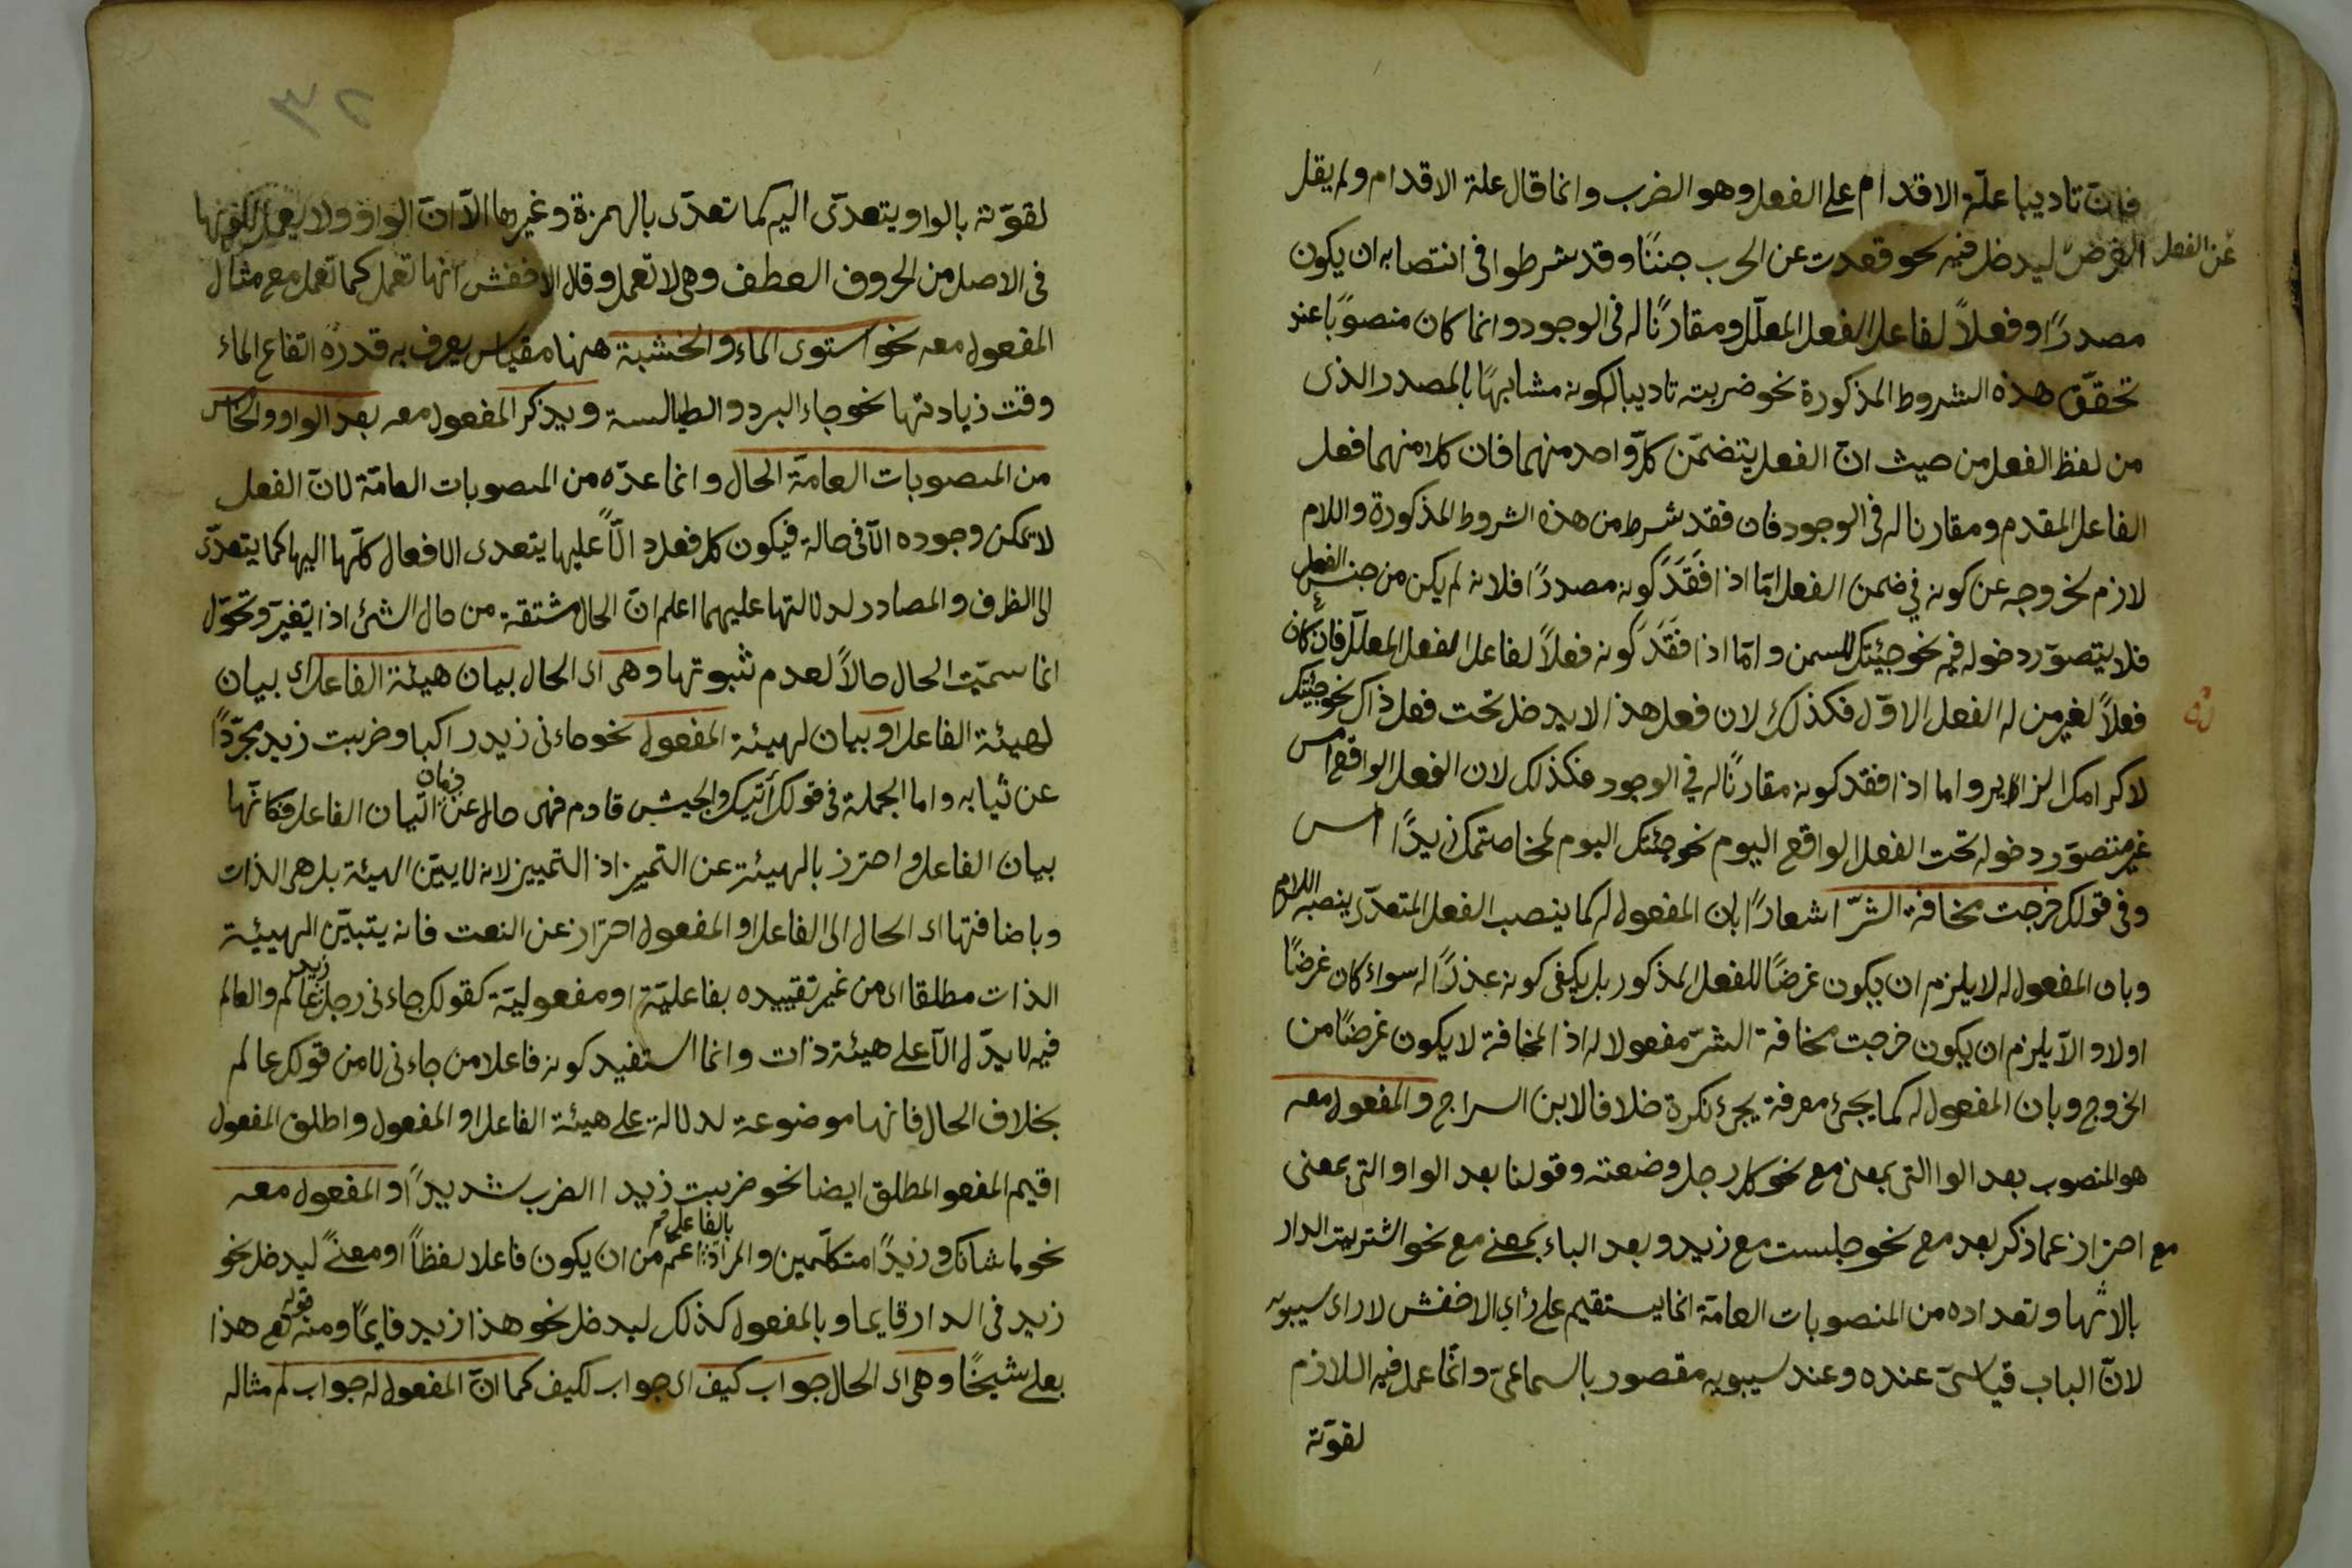 فانّ تاديبا علّة الاقدام على الفعل وهو الضرب وانما قال علة الاقدام ولم يقل
عن الفعل الغرض ليدخل فيه نحو قعدت عن الحرب جبنًا وقد شرطوا فى انتصابه ان يكون
مصدرًا وفعلاً لفاعل الفعل المعلّل ومقارنًا له فى الوجود وانما كان منصوبًا عند
تحقّق هذه الشروط المذكورة نحو ضربته تاديبا لكونه مشابهًا بالمصدر الذى
من لفظ الفعل من حيث انّ الفعل يتضمّن كلّ واحد منهما فان كلا منهما فعل
الفاعل المقدم ومقارنا له فى الوجود فان فقد شرط من هذه الشروط المذكورة واللام
لازم لخروجه عن كونه في ضمن الفعل امّا اذا فقد كونه مصدرًا فلانه لم يكن من جنس الفعل
فلا يتصوّر دخوله فيه نحو جيئتك للسمن وامّا اذا فقد كونه فعلاً لفاعل الفعل المعلّل فان كان
فعلاً لغير من له الفعل الاوّل فكذلك لان فعل هذا لا يدخل تحت فعل ذاك نحو جئتك
لاكرامك الزاير واما اذا فقد كونه مقارنًا له في الوجود فكذلك لان الفعل الواقع امس
غير متصوّر دخوله تحت الفعل الواقع اليوم نحو جئتك اليوم لمخاصمتك زيدًا امس
وفى قولك خرجت مخافة الشرّ اشعارًا بان المفعول له كما ينصب الفعل المتعدّى ينصبه اللازم
وبان المفعول له لا يلزم ان يكون غرضًا للفعل المذكور بل يكفى كونه عذرًا له سواء كان غرضًا
اولا والاّ يلزم ان يكون خرجت مخافة الشرّ مفعولا له اذ المخافة لا يكون غرضًا من
الخروج وبان المفعول له كما يجئ معرفة يجئ نكرة خلافا لابن السراج والمفعول معه
هو المنصوب بعد الوا التى بمعنى مع نحو كل رجل وضعته وقولنا بعد الواو التى بمعنى
مع احتراز عما ذكر بعد مع نحو جلست مع زيد وبعد الباء بمعنى مع نحو اشتريت الدار
بالاثها وتعداده من المنصوبات العامّة انما يستقيم على رأي الاخفش لا راى سيبويه
لانّ الباب قياسىّ عنده وعند سيبويه مقصور بالسماعىّ وانّما عمل فيه اللازم
لقوّته
٣٢
لقوّته بالواو يتعدّى اليه كما تعدّى بالهمزة وغيرها الاّ انّ الواو ولا يعمل لكونها
فى الاصل من الحروف العطف وهى لا تعمل وقال الاخفش انها تعمل كما تعمل مع مثال
المفعول معه نحو استوى الماء والخشبة ههنا مقياس يعرف به قدره اتفاع الماء
وقت زيادتها نحو جاء البرد والطيالسة ويذكر المفعول معه بعد الواو والخامس
من المنصوبات العامّة الحال وانما عدّه من المنصوبات العامّة لانّ الفعل
لا يمكن وجوده الاّ فى حالة فيكون كل فعل دالّاً عليها يتعدى الافعال كلّها اليها كما يتعدّى
الى الظرف والمصادر لدلالتها عليهما اعلم انّ الحال مشتقة من حال الشئ اذا تغيّر وتحوّل
انما سمّيت الحال حالاً لعدم ثبوتها وهى اى الحال بيان هيئة الفاعل اى بيان
لهيئة الفاعل او بيان لهيئة المفعول نحو جاءنى زيد راكبا وضربت زيد مجرّدًا
عن ثيابه واما الجملة فى قولك أتيتك والجيش قادم فهى حال عن زمان اتيان الفاعل فكانّها
بيان الفاعل واحترز بالهيئة عن التميز اذ التمييز لانه لا يبيّن الهيئة بل هى الذات
وباضافتها اى الحال الى الفاعل او المفعول احتراز عن النعت فانه يتبيّن الهيئة
الذات مطلقا اى من غير تقييده بفاعليّة او مفعوليّة كقولك جاءنى رجل زيد عالم والعالم
فيه لا يدّل الاّ على هيئة ذات وانما استفيد كونه فاعلا من جاءنى لا من قولك عالم
بخلاف الحال فانها موضوعة لدلالة على هيئة الفاعل او المفعول واطلق المفعول
اقيم المفعو المطلق ايضا نحو ضربت زيدا الضرب شديدًا والمفعول معه
نحو ما شانك وزيدًا متكلّمين والمراد بالفاعل اعمّ من ان يكون فاعلا لفظاً او معنىً ليدخل نحو
زيد فى الدار قايما وبالمفعول كذلك ليدخل نحو هذا زيد قايمًا ومنه قوله تع هذا
بعلى شيخًا وهى اى الحال جواب كيف اى جواب لكيف كما انّ المفعول له جواب لم مثاله